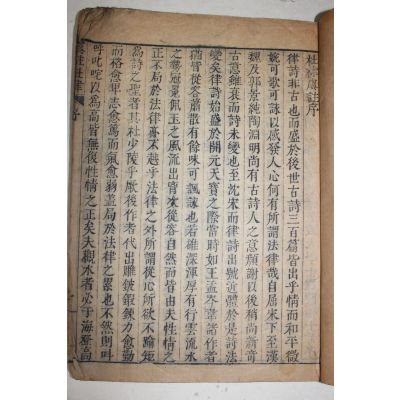 杜律虞註序
律詩非古也而盛於後世古詩三百篇皆出乎情而和平微
婉可歌可詠以感發人心何有所謂法律哉自屈宋下至漢
魏及郭景純陶淵明尚有古詩人之意顔謝以後稍尚新奇
古意雖衰而詩未變也至沈宋而律詩出號近體於是詩法
變矣律詩始盛於開元天寶之際當時如王孟岑韋諸作者
猶皆從容蕭散有餘味可諷詠也若雄深渾厚有行雲流水
之勢冠冕佩玉之風流出胷次從容自然而皆由夫性情之
正不局於法律亦不越乎法律之外所謂從心所欲不踰矩
爲詩之聖者其杜少陵乎厥後作者代出雕鎪鍜鍊力愈勤
而格愈卑志愈篤而氣愈弱蓋局於法律之累也不然則叫
呼叱咤以爲高皆無復性情之正矣夫觀水者必于海登高